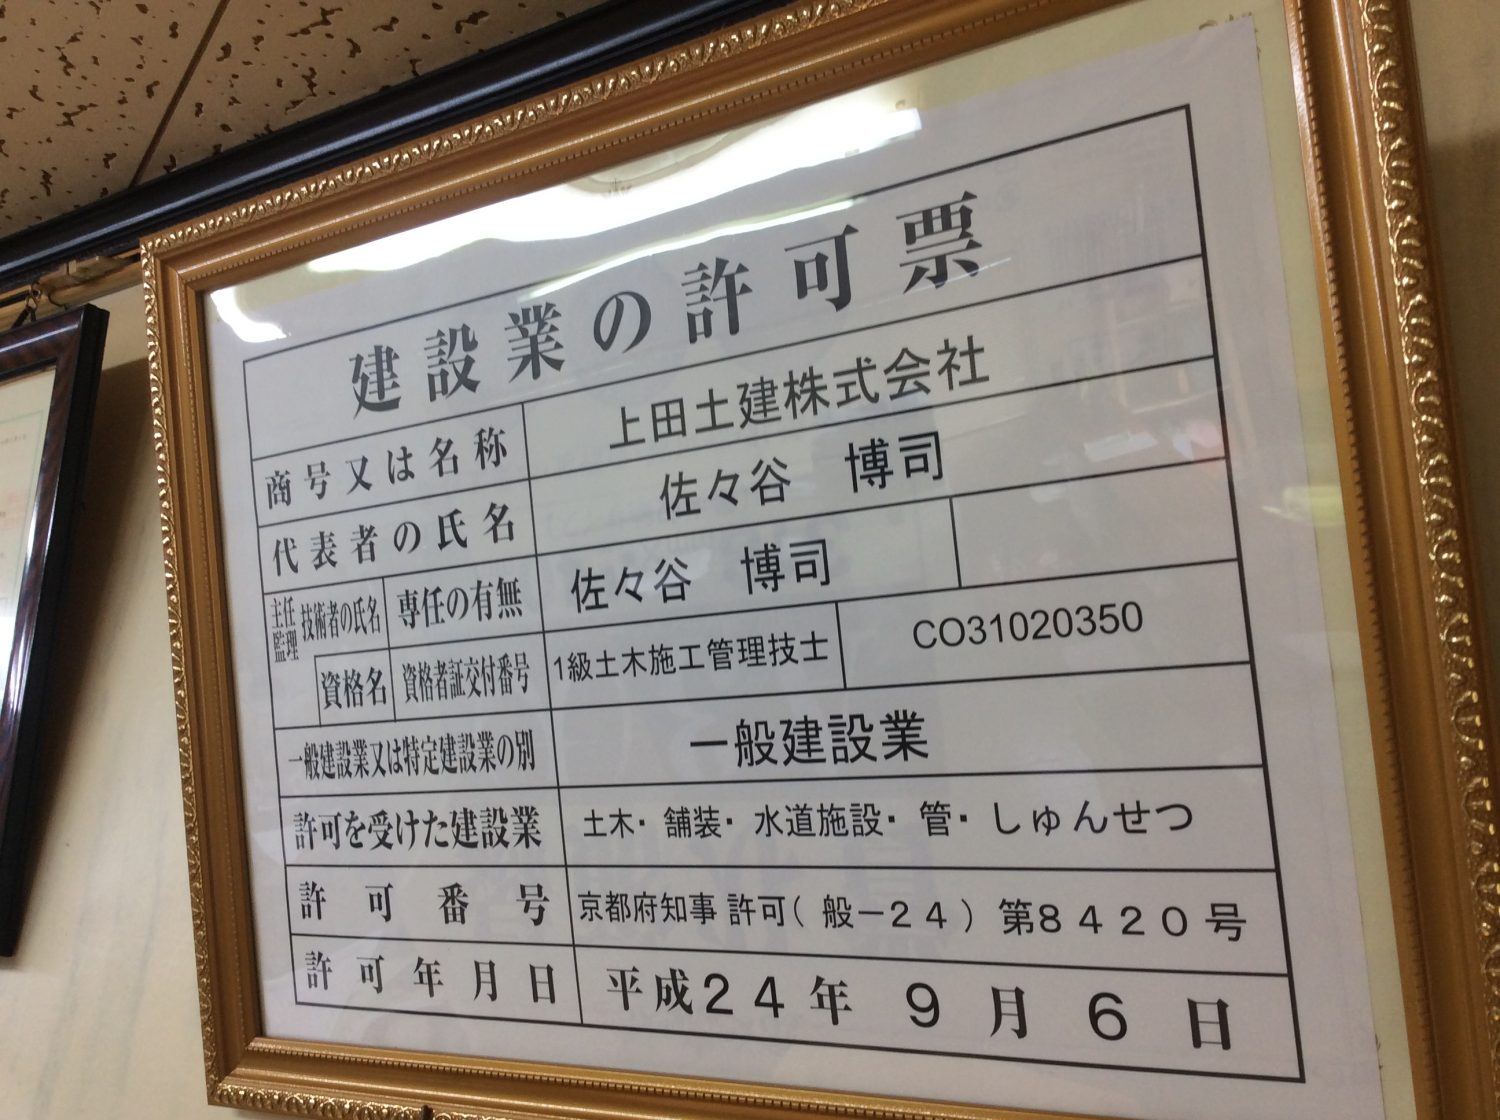 建設業の許可票
商号又は名称 上田土建株式会社
代表者の氏名 佐々谷 博司
主任監理技術者の氏名 専任の有無 佐々谷 博司
資格名 資格者証交付番号 1級土木施工管理技士 CO31020350
一般建設業又は特定建設業の別 一般建設業
許可を受けた建設業 土木・舗装・水道施設・管・しゅんせつ
許可番号 京都府知事 許可(般－24)第8420号
許可年月日 平成24年9月6日